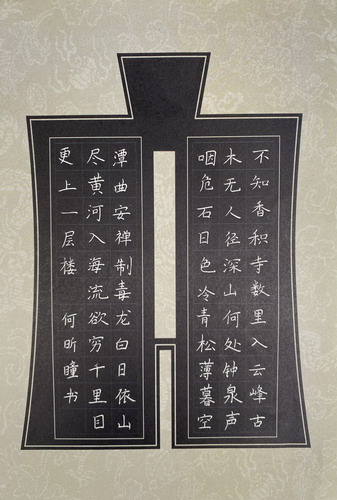 不知香积寺数里入云峰古
木无人径深山何处钟泉声
咽危石日色冷青松薄暮空
潭曲安禅制毒龙白日依山
尽黄河入海流欲穷千里目
更上一层楼 何昕瞳书